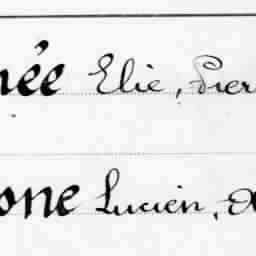 née Elie, Pier
one Lucien,